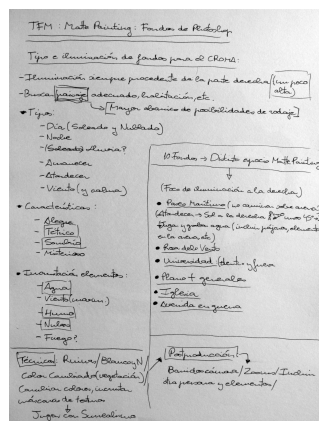 TFM: Matte Painting: Fondos de Photoshop
Tipo e iluminación de fondos para el CROMA:
- Iluminación siempre procedente de la parte derecha (un poco alta)
- Buscar paisaje adecuado, habitación, etc.
[Mayor abanico de posibilidades de rodaje]
• Tipos:
- Día (Soleado y Nublado)
- Noche
- (Soleado) ¿lluvia?
- Amanecer
- Atardecer
- Viento (y calma)
• Características:
- Alegre
- Tétrico
- Sombrío
- Misterioso
• Incrustación elementos:
- Agua
- Viento
- Humo
- Nubes
- Fuego?
Técnica: Ruinas/Blanco y N
Color Cambiado (vegetación)
Cambiar colores, incrustar
máscaras de textura
Jugar con Surrealismo
10 Fondos → Distinto espacio Matte Painting
(Foco de iluminación a la derecha)
• Paseo Marítimo (no camina sobre arena)
(Atardecer → Sol a la derecha 45º
y grabar agua (incluir pájaros, elementos
en la arena, etc)
• Rosa dels Vents
• Universidad: dentro y fuera
• Plano + generales
• Iglesia
• Avenida en guerra
Postproducción
Barridos cámara/Zooms/Incluir
día persona y elementos/